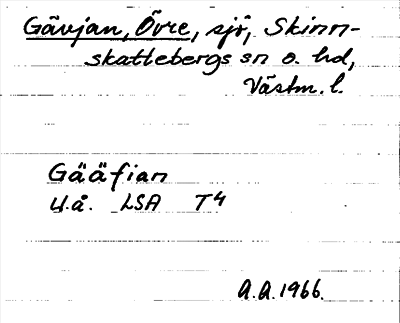 Gävjan, Övre, sjö, Skinn-
skattebergs sn o. hd,
Västm. l.
Gääfian
U.å. LSA T4
A.A. 1966.